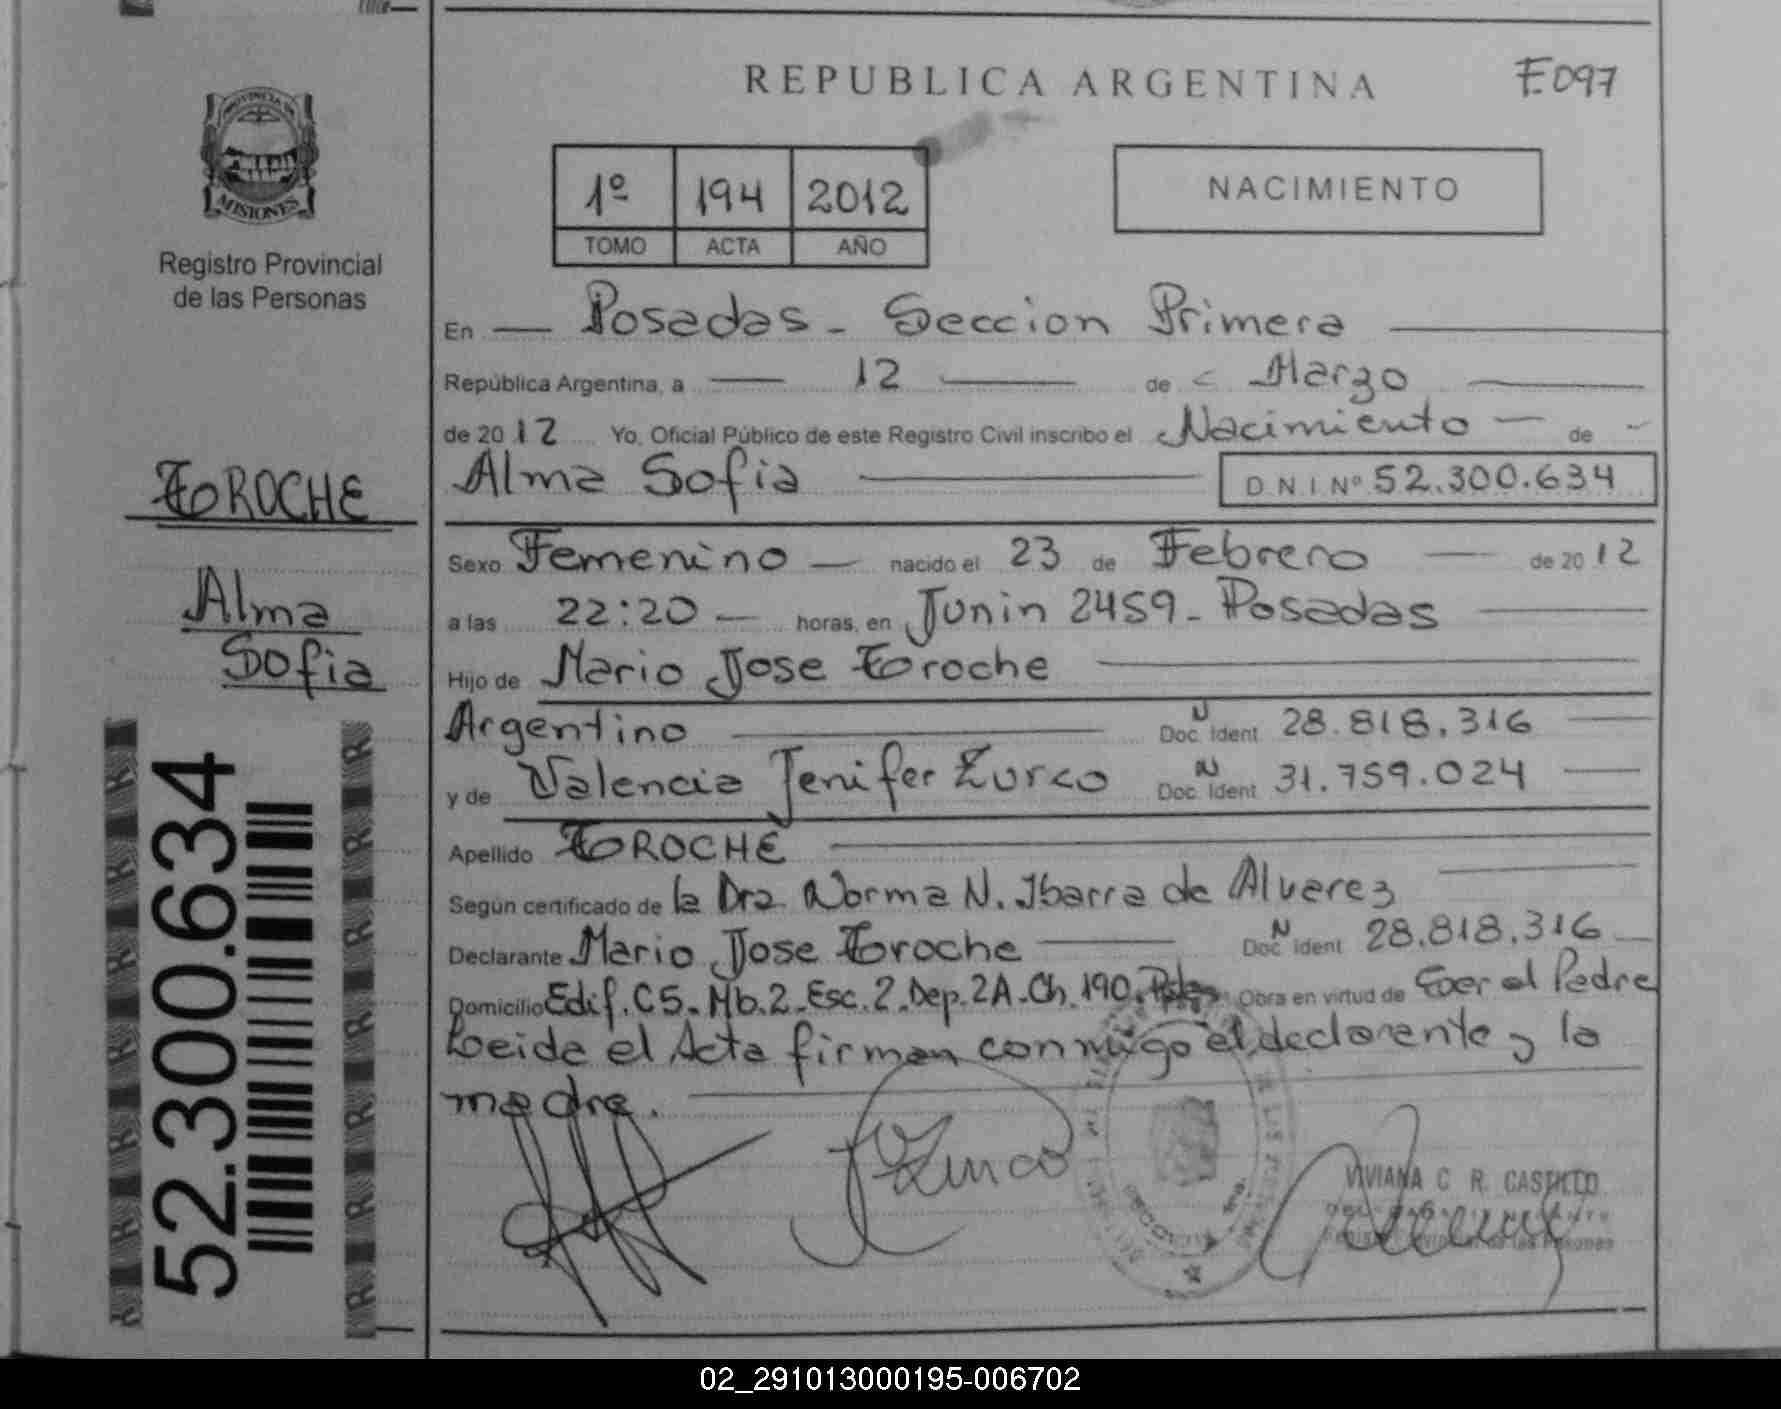 REPUBLICA ARGENTINA
F.097
PROVINCIA DE
MISIONES
Registro Provincial
de las Personas
1º 194 2012
TOMO ACTA AÑO
NACIMIENTO
En Posadas - Seccion Primera
República Argentina, a 12 de Marzo
de 2012 Yo, Oficial Público de este Registro Civil inscribo el Nacimiento de
Alma Sofia D.N.I. Nº 52.300.634
Sexo Femenino nacido el 23 de Febrero de 2012
a las 22:20 horas, en Junin 2459 - Posadas
Hijo de Mario Jose Toroche
Argentino Doc. Ident N 28.818.316
y de Valencia Jenifer Zurco Doc. Ident N 31.759.024
Apellido TOROCHE
Según certificado de la Dra Norma N. Ibarra de Alvarez
Declarante Mario Jose Toroche Doc. Ident N 28.818.316
Domicilio Edif. C5 - Mb. 2 - Esc. 2 - Dep. 2A - Ch. 190 - Obra en virtud de Ser el Padre
Leida el Acta firman conmigo el declarante y la
madre.
Zurco
VIVIANA C. R. CASTILLO
TOROCHE
Alma
Sofia
52.300.634
02_291013000195-006702